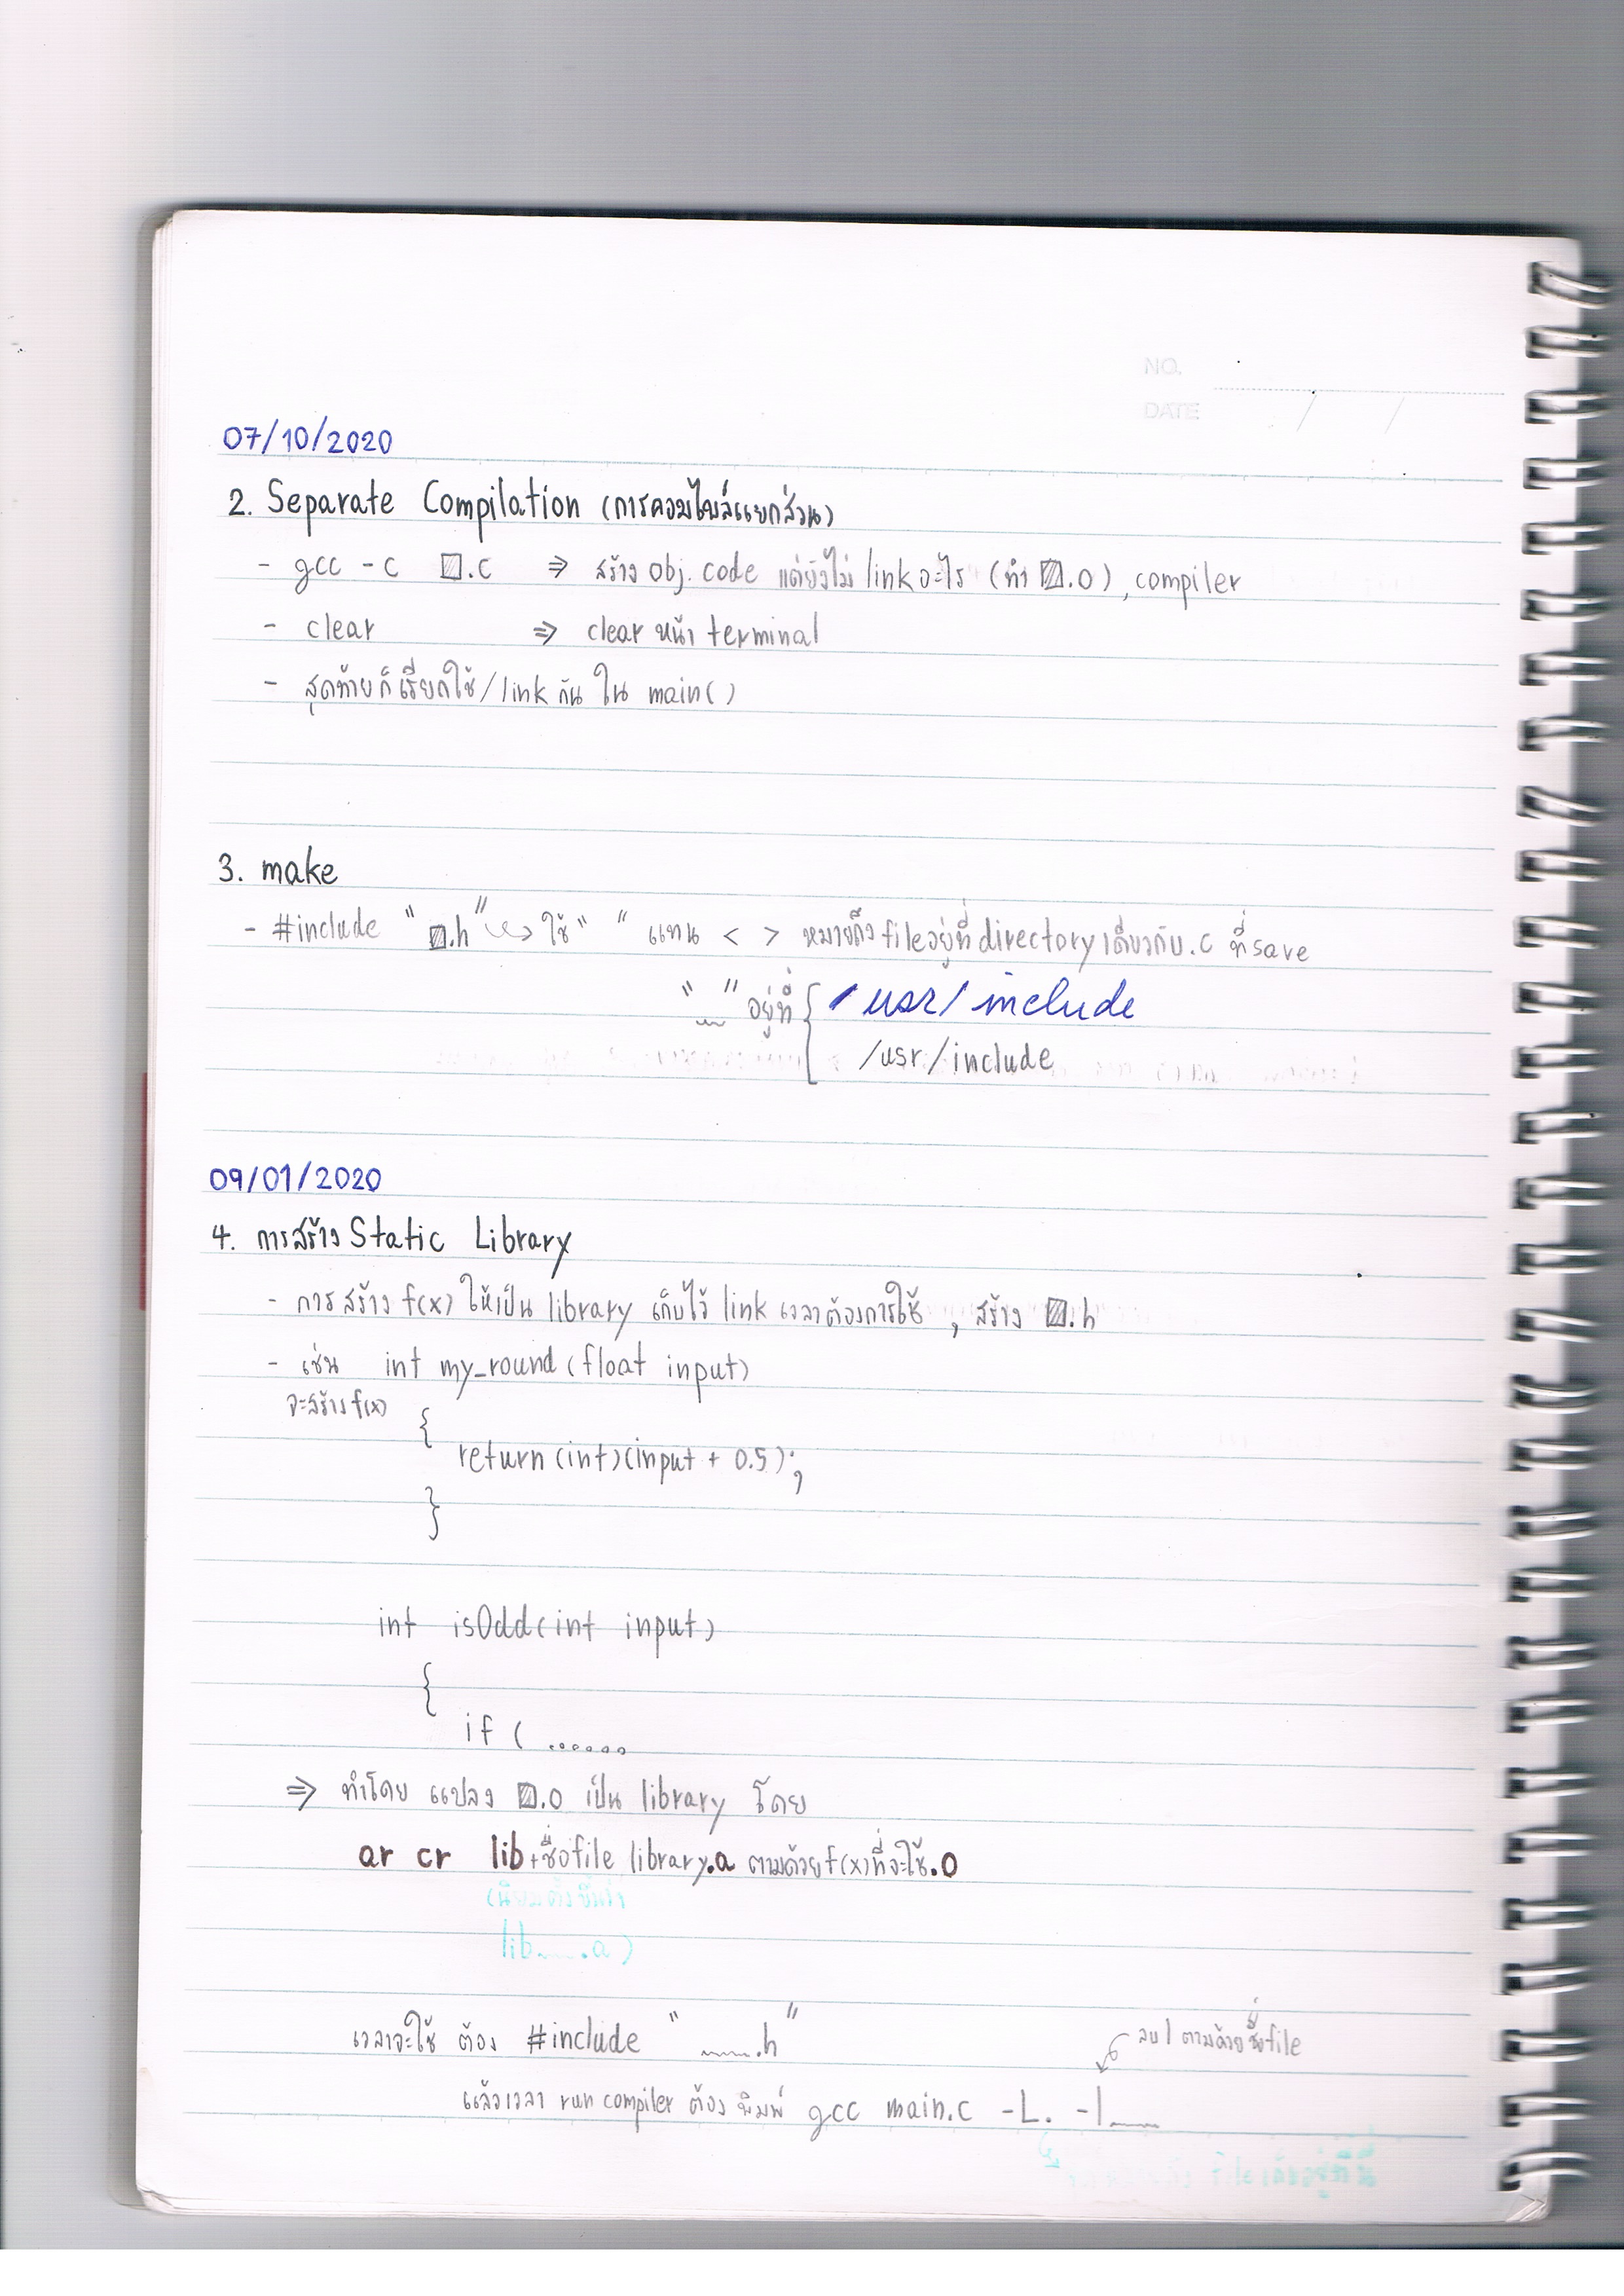 NO.
DATE / /
07/10/2020
2. Separate Compilation (การคอมไพล์แยกส่วน)
- gcc -c ▨.c ⇒ สร้าง obj. code แต่ยังไม่ link อะไร (ทำ ▨.o), compiler
- clear ⇒ clear หน้า terminal
- สุดท้ายก็เรียกใช้/link กัน ใน main()
3. make
- #include "▨.h" → ใช้ " " แทน < > หมายถึง file อยู่ที่ directory เดียวกับ .c ที่ save
"﹏" อยู่ที่ { /usr/include
/usr/include
09/01/2020
4. การสร้าง Static Library
- การสร้าง f(x) ให้เป็น library เก็บไว้ link เวลาต้องการใช้ , สร้าง ▨.h
- เช่น int my_round(float input)
จะสร้าง f(x) {
return (int)(input + 0.5);
}
int isOdd(int input)
{
if ( ......
⇒ ทำโดย แปลง ▨.o เป็น library โดย
ar cr lib+ชื่อ file library.a ตามด้วย f(x) ที่จะใช้.o
(นิยมตั้งขึ้นว่า
lib﹏.a)
เวลาจะใช้ ต้อง #include "﹏.h"
ลบ l ตามด้วยชื่อ file
แล้วเวลา run compiler ต้อง พิมพ์ gcc main.c -L. -l﹏
file